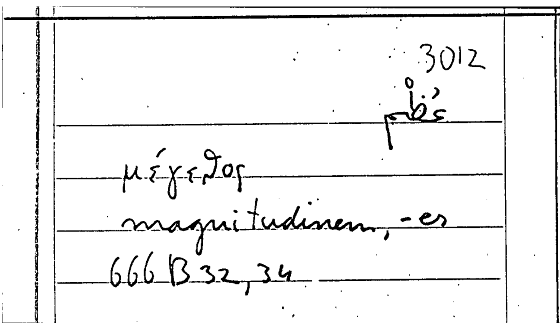 3012
عظم
μέγεθος
magnitudinem, -es
666 B 32, 34